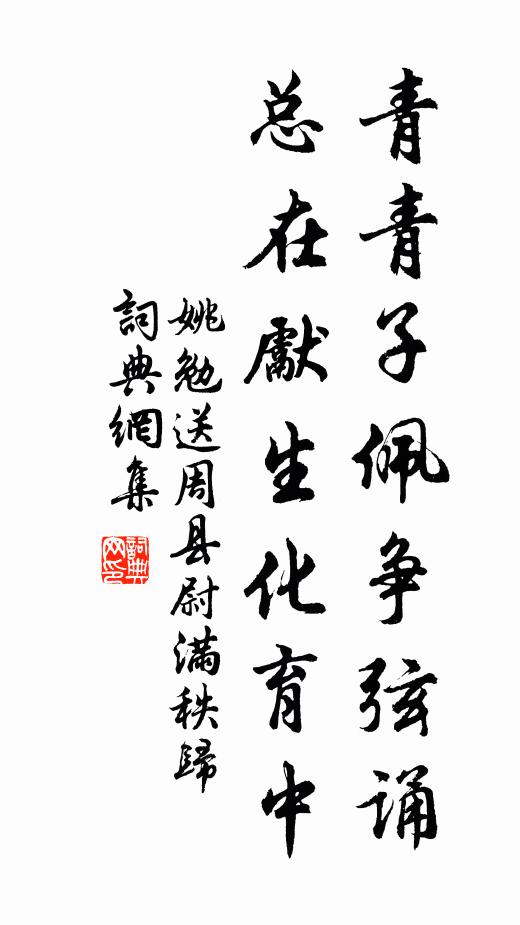 青青子佩争弦诵
总在献生化育中
姚勉送周县尉满秩歸
詞典網集
詞典網印